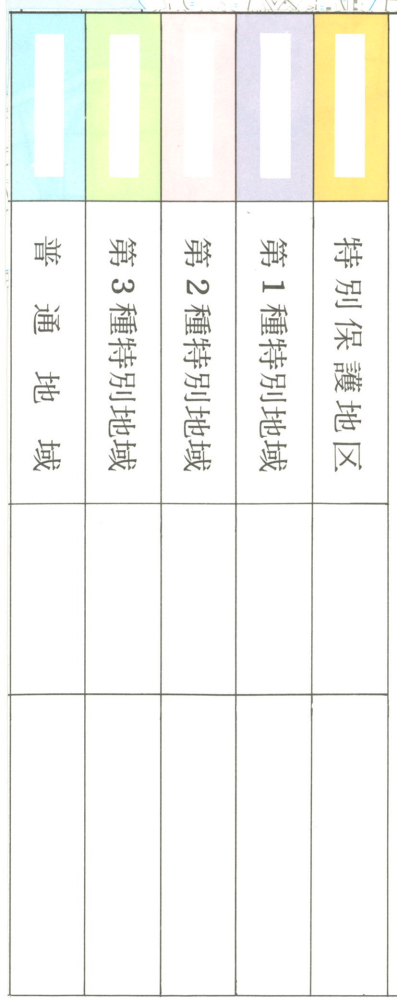 特別保護地区
第1種特別地域
第2種特別地域
第3種特別地域
普通地域